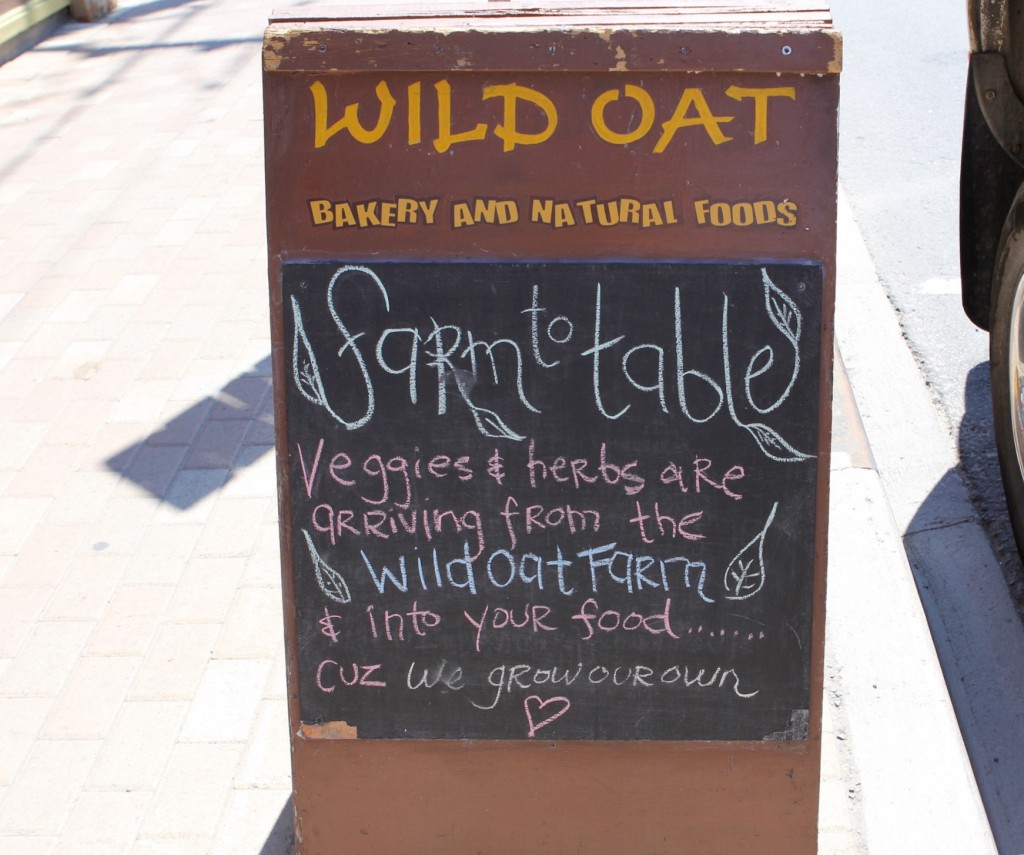 WILD OAT
BAKERY AND NATURAL FOODS
farm to table
Veggies & herbs are
arriving from the
Wild Oat Farm
& into your food.......
cuz we grow our own